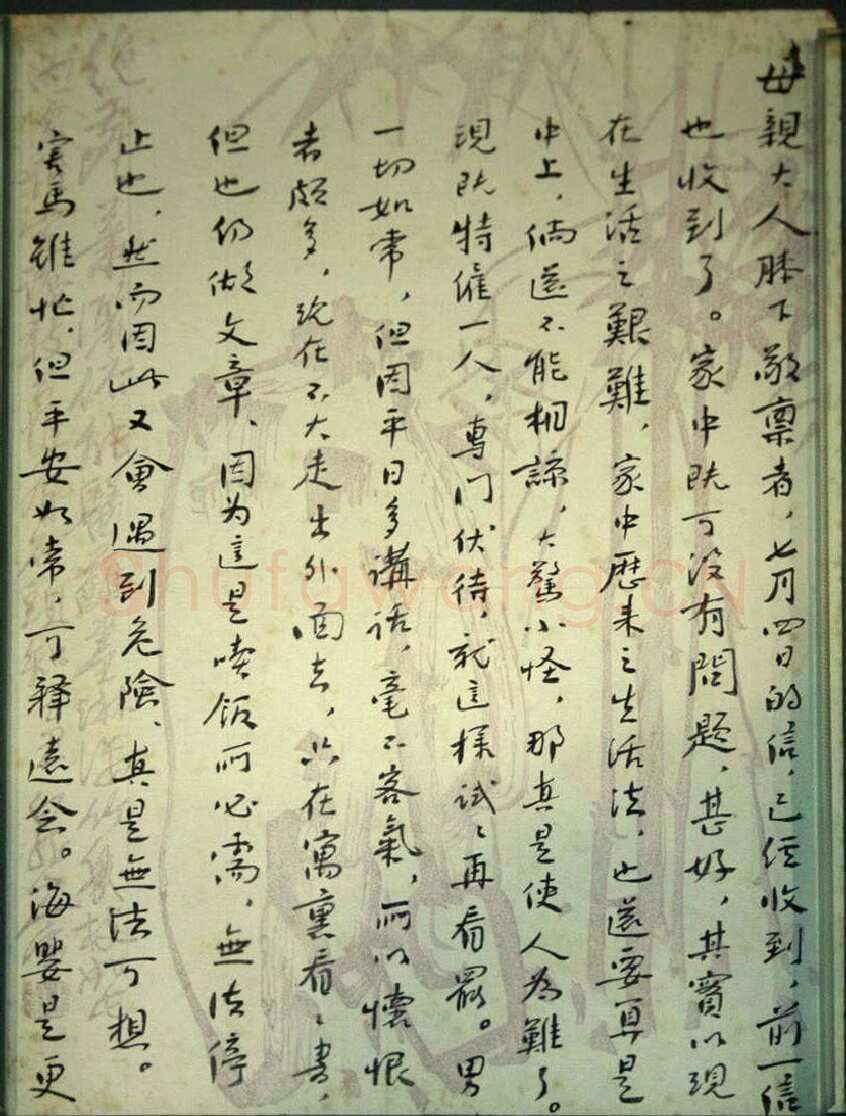 母親大人膝下敬稟者，七月四日的信，已經收到，前一信
也收到了。家中既可沒有問題，甚好，其實以現
在生活之艱難，家中歷來之生活法，也還要算是
中上，倘還不能相諒，大驚小怪，那真是使人為難了。
現既特僱一人，專門伏待，就這樣試試再看罷。男
一切如常，但因平日多講話，毫不客氣，所以懷恨
者頗多，現在不大走出外面去，只在寓裏看看書，
但也仍做文章，因为這是喫飯所必需，無法停
止也，然而因此又會遇到危險，真是無法可想。
害馬雖忙，但平安如常，可釋遠念。海嬰是更
shufawang.cn